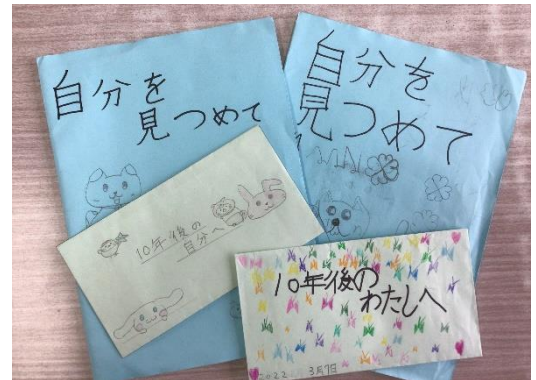 自分を
見つめて
自分を
見つめて
10年後の
自分へ
10年後の
わたしへ
2022 3月7日